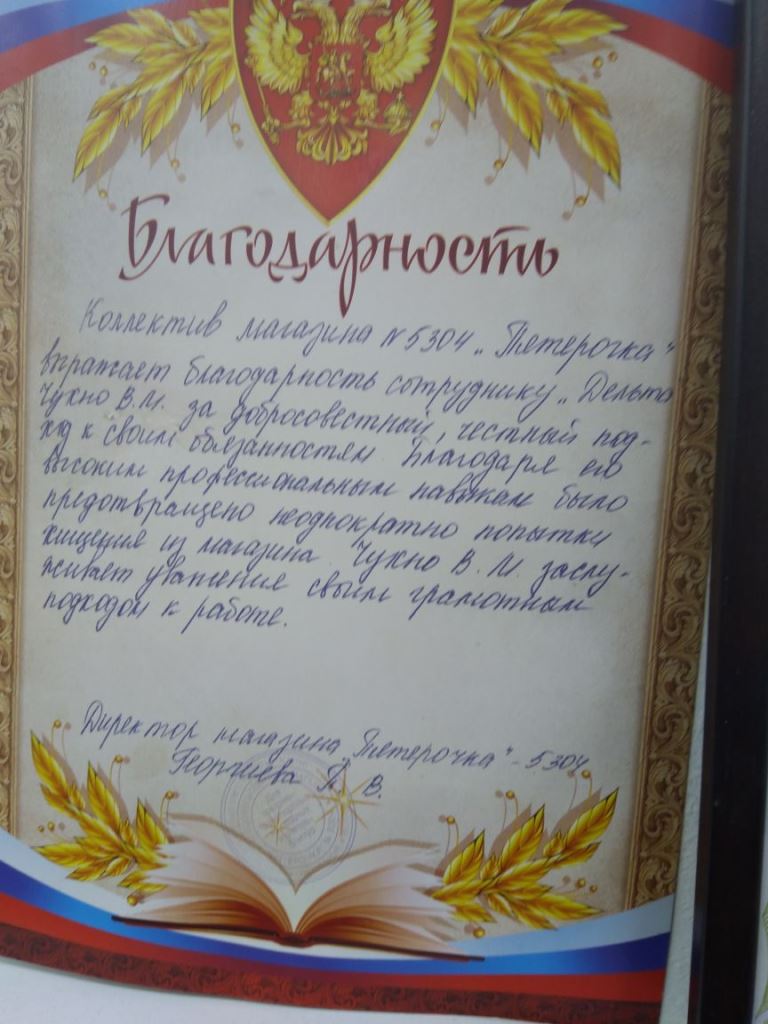 Благодарность
Коллектив магазина № 5304 „Пятерочка"
выражает благодарность сотруднику „Дельта
Чукно В.М. за добросовестный, честный под-
ход к своим обязанностям. Благодаря его
высоким профессиональным навыкам было
предотвращено неоднократно попытки
хищения из магазина. Чукно В. М. заслу-
живает уважение своим грамотным
подходом к работе.
Директор магазина „Пятерочка" - 5304
Георгиева В.